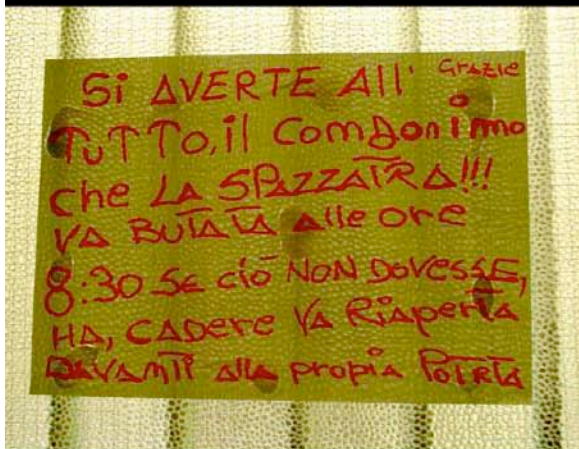 Si AVERTE All' Grazie
TUTTO, il Comdonimo
che LA SPAZZATRA!!!
VA BUTATA alle ore
8:30 SE ciò NON DOVESSE,
HA, CADere VA RiAperta
DAVAMTi alla propia POTRTA